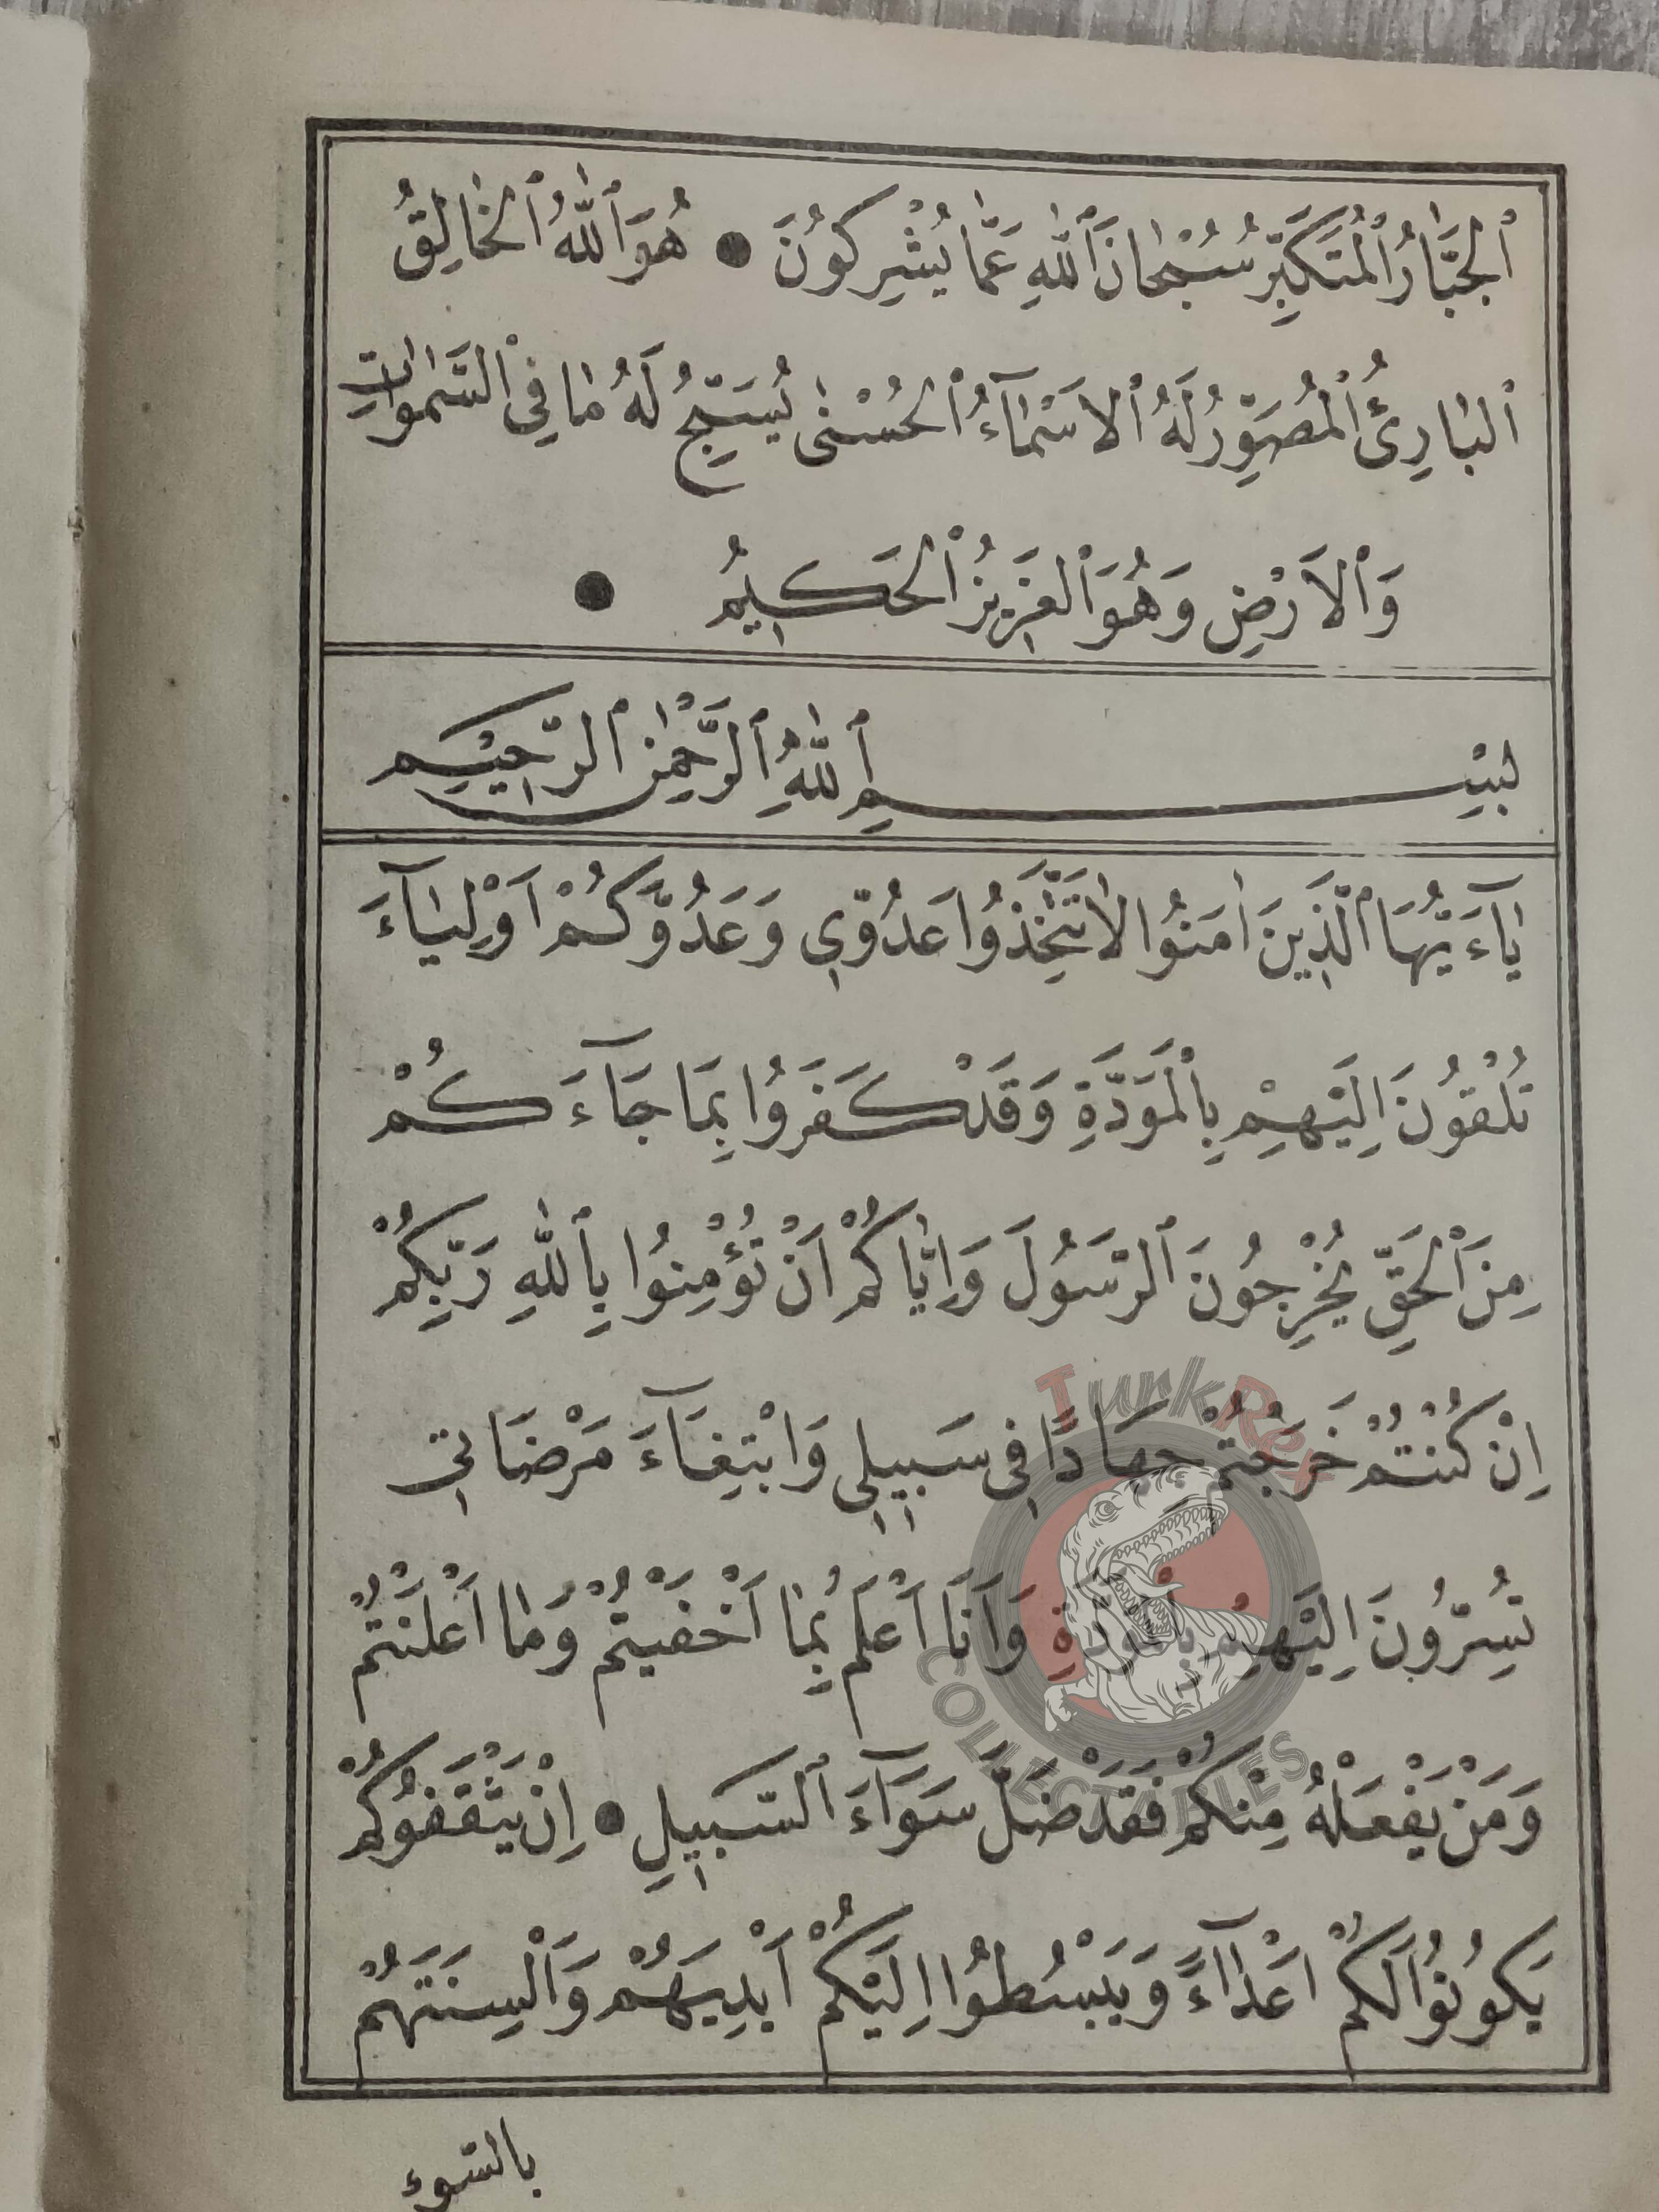 ٱلْجَبَّارُ ٱلْمُتَكَبِّرُ سُبْحَانَ ٱللّٰهِ عَمَّا يُشْرِكُونَ ● هُوَ ٱللّٰهُ ٱلْخَالِقُ
ٱلْبَارِئُ ٱلْمُصَوِّرُ لَهُ ٱلْاَسْمَآءُ ٱلْحُسْنٰى يُسَبِّحُ لَهُ مَا فِى ٱلسَّمٰوَاتِ
وَٱلْاَرْضِ وَهُوَ ٱلْعَزِيزُ ٱلْحَكِيمُ ●
بِسْمِ ٱللّٰهِ ٱلرَّحْمٰنِ ٱلرَّحِيمِ
يَآءَيُّهَا ٱلَّذِينَ اٰمَنُوا لَا تَتَّخِذُوا عَدُوِّى وَعَدُوَّكُمْ اَوْلِيَآءَ
تُلْقُونَ اِلَيْهِمْ بِٱلْمَوَدَّةِ وَقَدْ كَفَرُوا بِمَا جَآءَكُمْ
مِنَ ٱلْحَقِّ يُخْرِجُونَ ٱلرَّسُولَ وَاِيَّاكُمْ اَنْ تُؤْمِنُوا بِٱللّٰهِ رَبِّكُمْ
اِنْ كُنْتُمْ خَرَجْتُمْ جِهَادًا فِى سَبِيلِى وَابْتِغَآءَ مَرْضَاتِى
تُسِرُّونَ اِلَيْهِمْ بِٱلْمَوَدَّةِ وَاَنَا اَعْلَمُ بِمَا اَخْفَيْتُمْ وَمَا اَعْلَنْتُمْ
وَمَنْ يَفْعَلْهُ مِنْكُمْ فَقَدْ ضَلَّ سَوَآءَ ٱلسَّبِيلِ ● اِنْ يَثْقَفُوكُمْ
يَكُونُوا لَكُمْ اَعْدَآءً وَيَبْسُطُوا اِلَيْكُمْ اَيْدِيَهُمْ وَاَلْسِنَتَهُمْ
بالسّوء
TurkRex
COLLECTIBLES